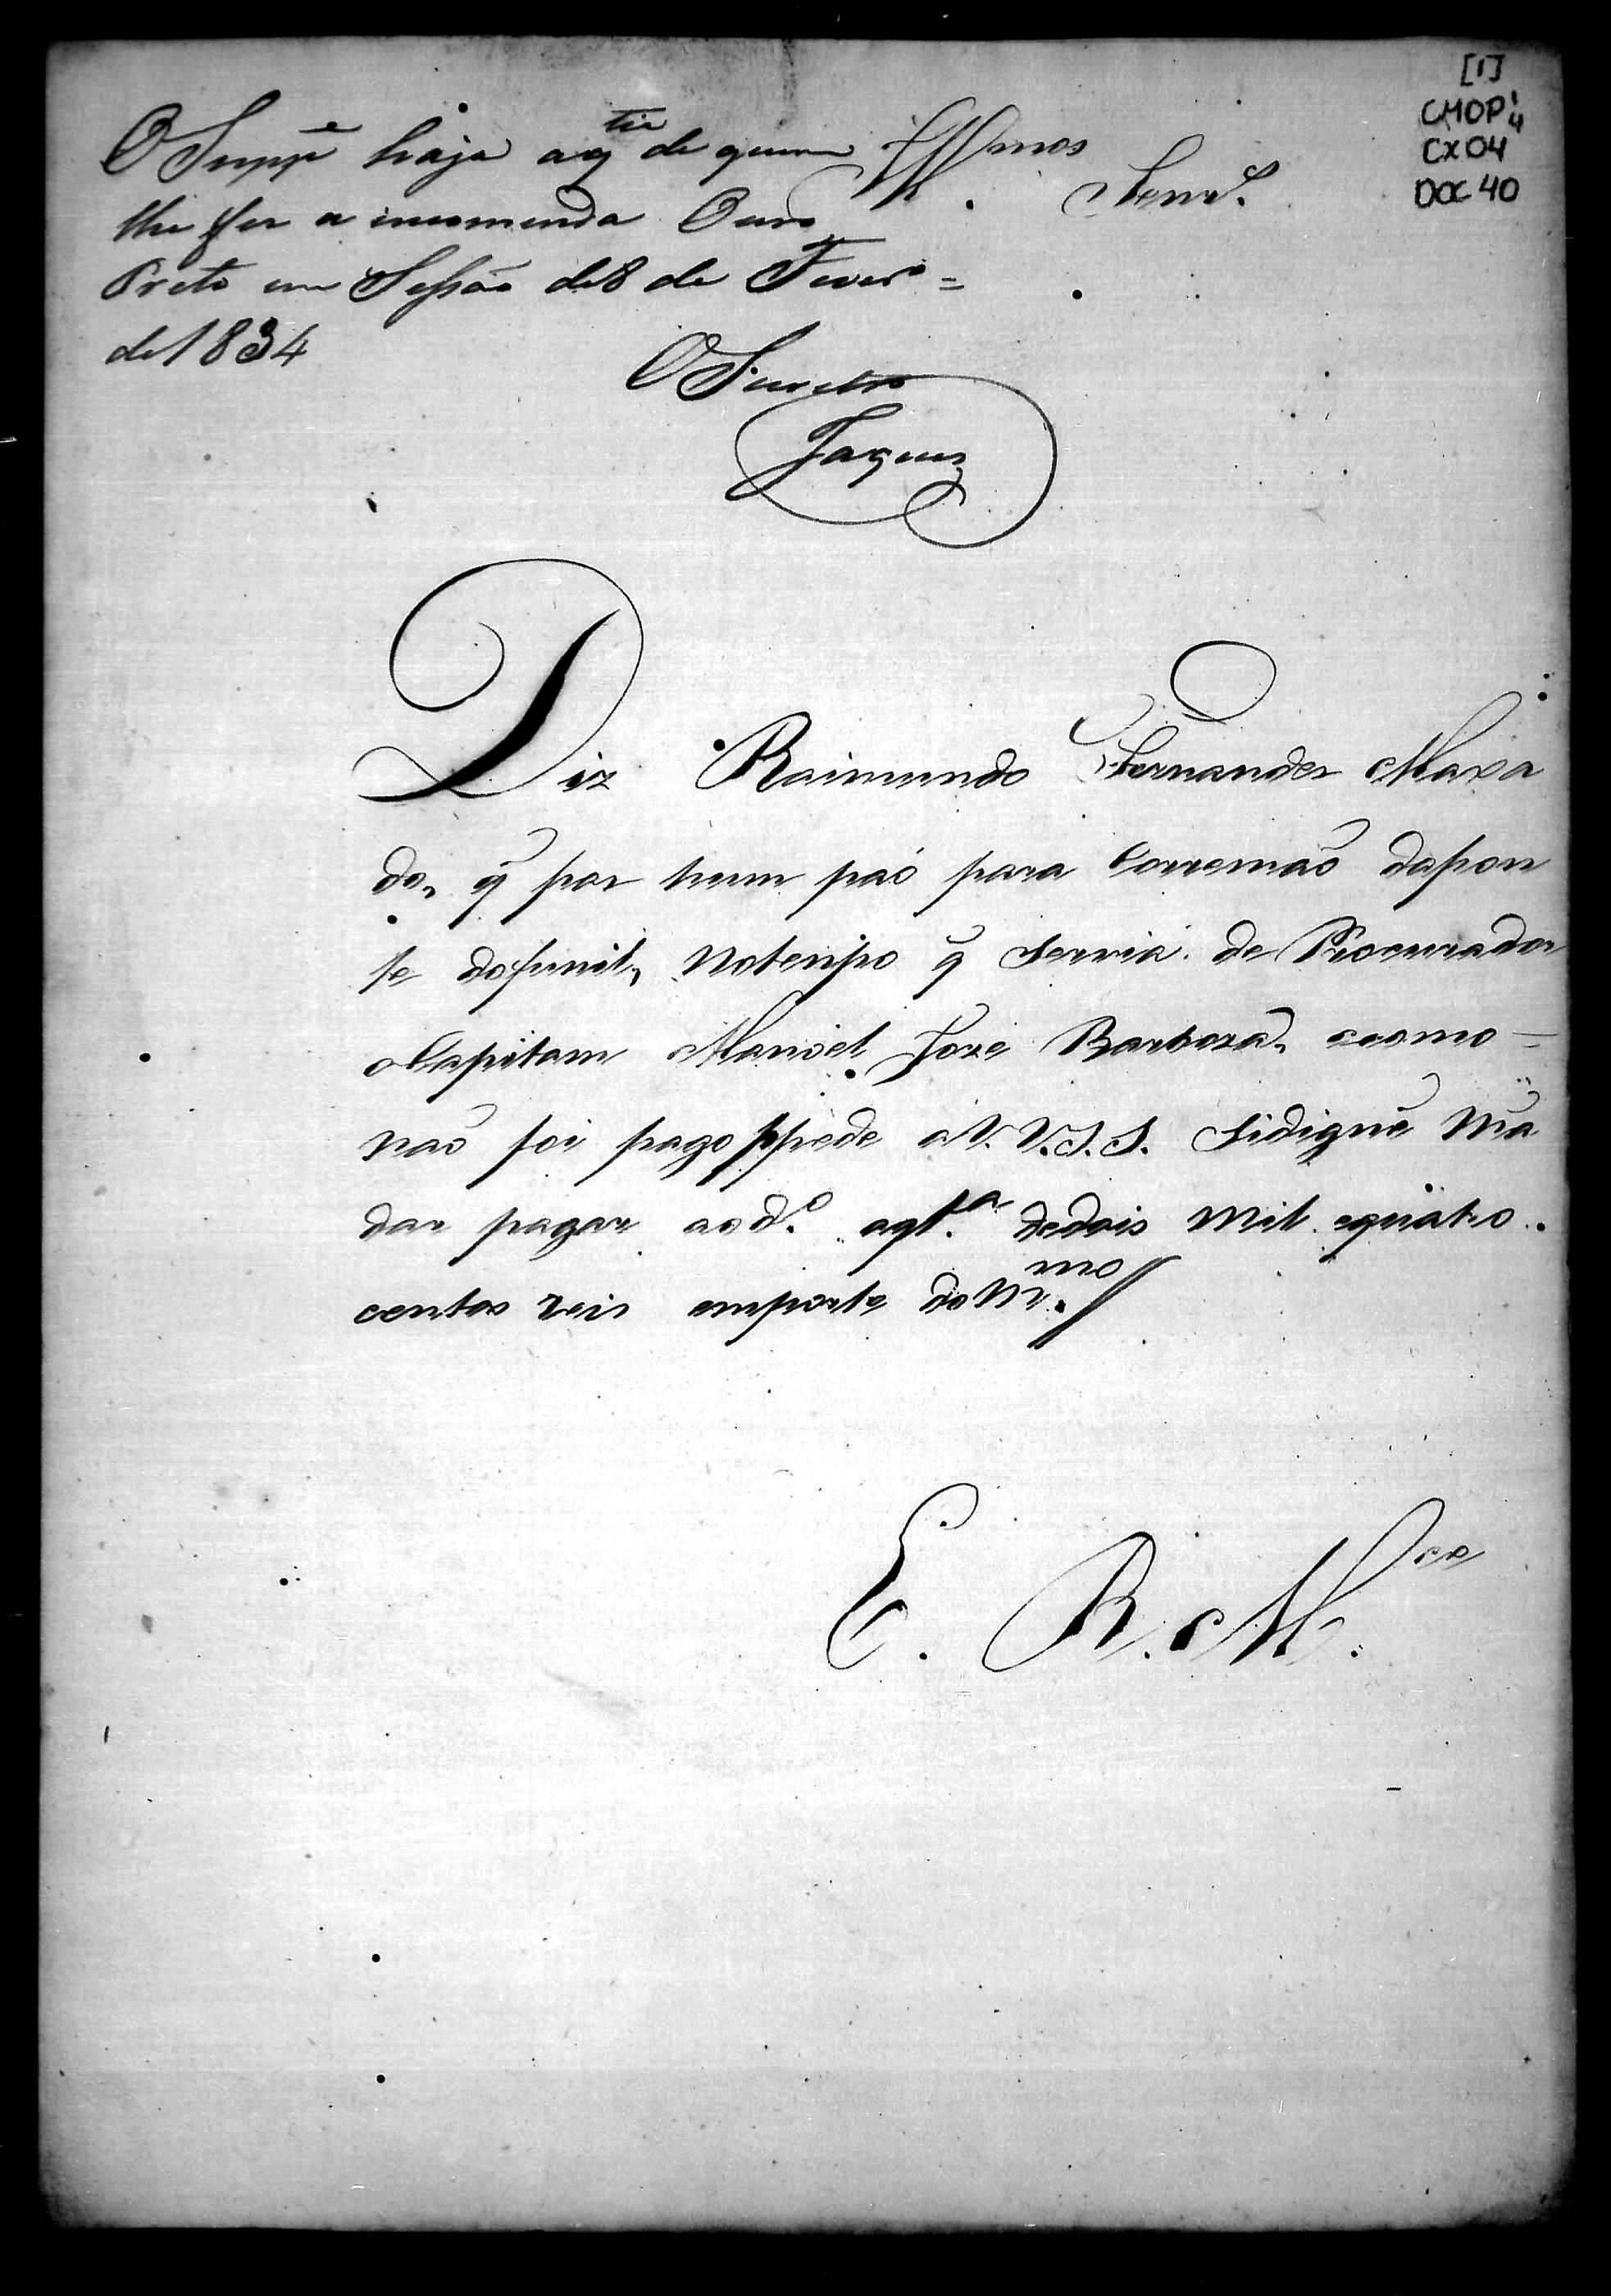 [1]
CMOP 1/4
CX 04
DOC 40
O Supp.e haja a q.tia de quem
lhe fez a incomenda Ouro
Preto em Sessão de 8 de Fever.o =
de 1834
O Secretr.o
Jaques
Ill.mos Senr.s
Diz Raimundo Fernandes Maxa
do, q̃ por hum páo para Corremaõ dapon
te dofunil, Notenpo q̃ Servia de Procurador
oCapitam Manoel Joze Barboza, ecomo =
naõ foi pago ppede aV.V.S.S. Sidigne Mã
dar pagar aod.o aqt.a dedois Mil equatro
centos reis emporte doM.mo //
E. R. M.ce